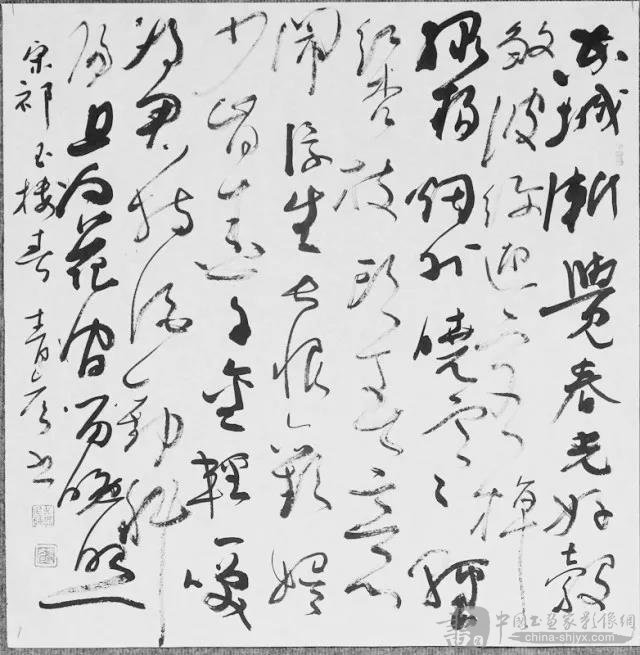 东城渐覺春光好縠
皱波纹迎客棹
緑楊烟外曉寒輕
红杏枝头春意
闹浮生长恨歡娱
少肯爱千金輕一笑
为君持酒劝斜
阳且向花间留晚照
宋祁玉楼春
中國书画家影像網
china-shjyx.com